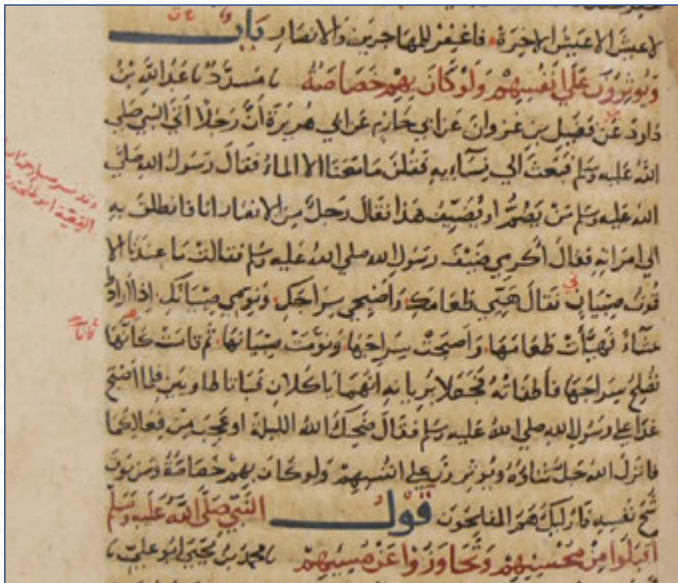 لا عيش الا عيش الاخرة فاغفر للمهاجرين والانصار باب
ويؤثرون علي انفسهم ولو كان بهم خصاصة مسدد عبد الله بن
داود عن فضيل بن غزوان عن ابي حازم عن ابي هريرة أن رجلا أتي النبي صلي
الله عليه وسلم فبعث الي نسائه فقلن ما معنا الا الماء فقال رسول الله صلي
الله عليه وسلم من يضم او يضيف هذا فقال رجل من الانصار انا فانطلق به
الي امراته فقال أكرمي ضيف رسول الله صلي الله عليه وسلم فقالت ما عندنا الا
قوت صبياني فقال هيي طعامك وأصبحي سراجك ونومي صبيانك إذا أرادوا
عشاء فهيأت طعامها وأصبحت سراجها ونومت صبيانها ثم قامت كأنها
تصلح سراجها فأطفأته فجعلا يريانه انهما ياكلان فباتا طاويين فلما أصبح
غدا علي رسول الله صلي الله عليه وسلم فقال ضحك الله الليلة او عجب من فعالكما
فانزل الله جل ثناؤه ويوثرون علي انفسهم ولو كان بهم خصاصة ومن يوق
شح نفسه فاوليك هم المفلحون قول النبي صلي الله عليه وسلم
اقبلوا من محسنهم وتجاوزوا عن مسيئهم محمد بن يحيي ابو علي